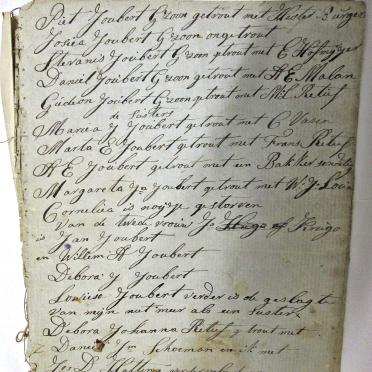 Piet Joubert G zoon getrout met Hester Burger
Josua Joubert G zoon ongetrout
Stevanis Joubert G zoon getrout met E Hofmyger
Daniel Joubert G zoon getrout met A E Malan
Gidion Joubert G zoon getrout met M L Retief
de Susters
Maria y Joubert getrout met C Vasen
Marta E Joubert getrout met Frans Retief
A E Joubert getrout met een Bakker
Margareta Ja Joubert getrout met W. J. Louw
Cornelia is nojye gestorven
Van de twede vrouw Js Hugo of Krigo
is Jan Joubert
en Willem A Joubert
Debora y Joubert
Louiese Joubert verder is de geslagte
van mijn niet meer als een suster
Debora Johanna Retief g trout met
Daniel Jm Schoeman in k met
Jos D